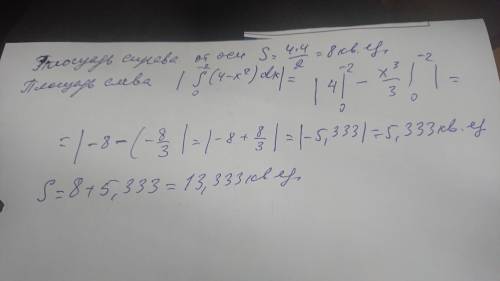 Площадь справа от оси S = 4·4/2 = 8 кв. ед,
Площадь слева | ∫₀⁻² (4-x²)dx | = | 4|₀⁻² - x³/3 |₀⁻² | =
= |-8-(-8/3| = |-8+8/3| = |-5,333| = 5,333 кв. ед
S = 8+5,333 = 13,333 кв ед,